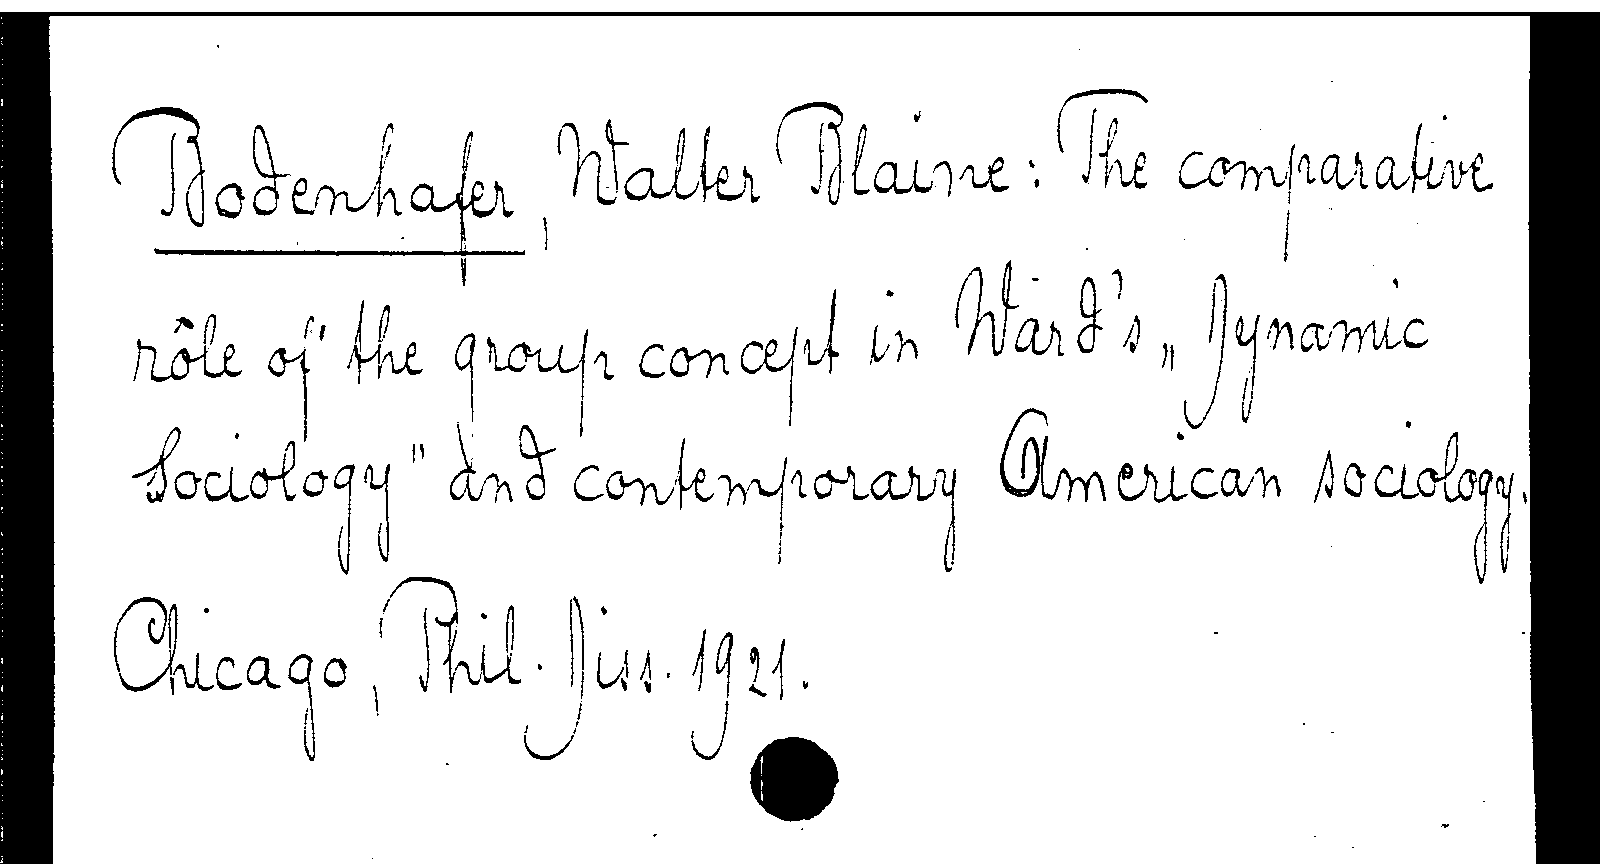 Bodenhafer, Walter Blaine: The comparative
rôle of the group concept in Ward's „Dynamic
Sociology" and contemporary American sociology.
Chicago, Phil. Diss. 1921.